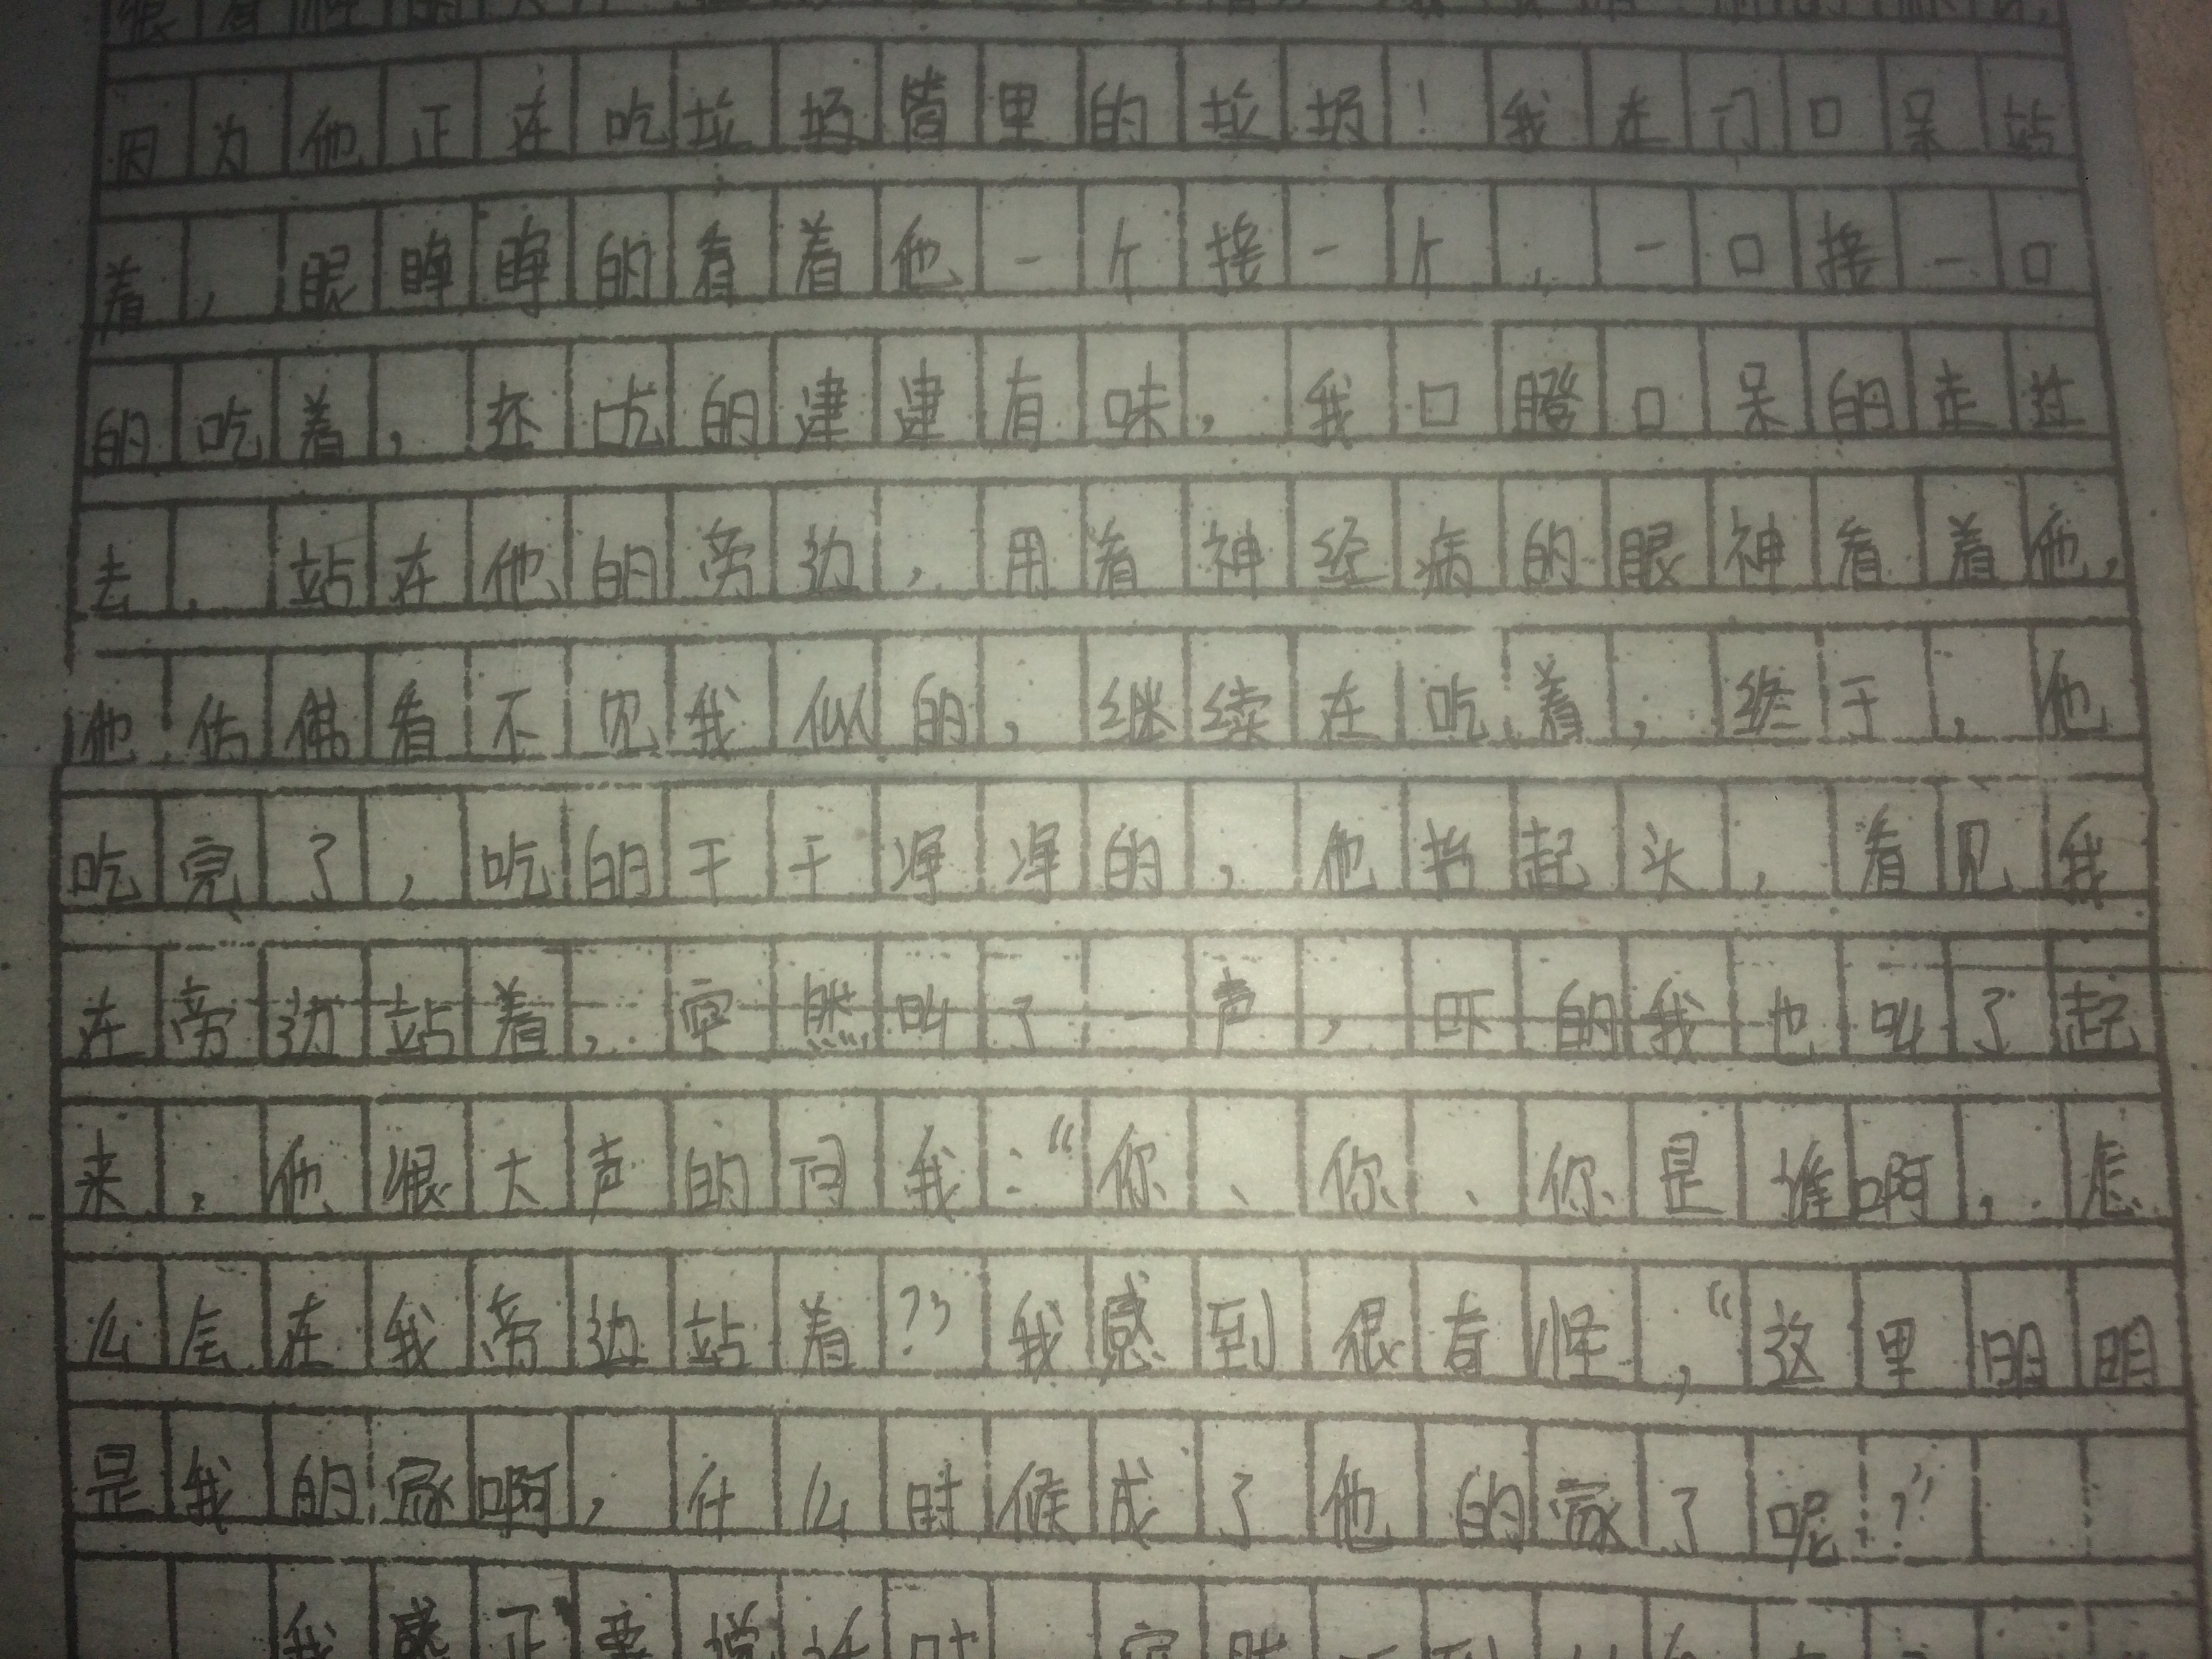 因为他正在吃垃圾筒里的垃圾！我在门口呆站
着，眼睁睁的看着他一个接一个，一口接一口
的吃着，还吃的津津有味，我口瞪口呆的走过
去，站在他的旁边，用着神经病的眼神看着他，
他仿佛看不见我似的，继续在吃着，终于，他
吃完了，吃的干干净净的，他抬起头，看见我
在旁边站着，突然叫了一声，吓的我也叫了起
来，他很大声的问我：“你、你、你是谁啊，怎
么会在我旁边站着？”我感到很奇怪，“这里明明
是我的家啊，什么时候成了他的家了呢？”
我感正要说话时